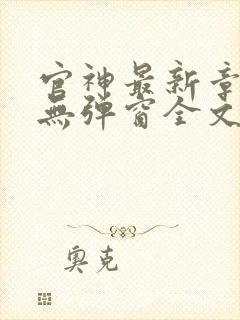 官神最新章
無弹窗全文
奥克